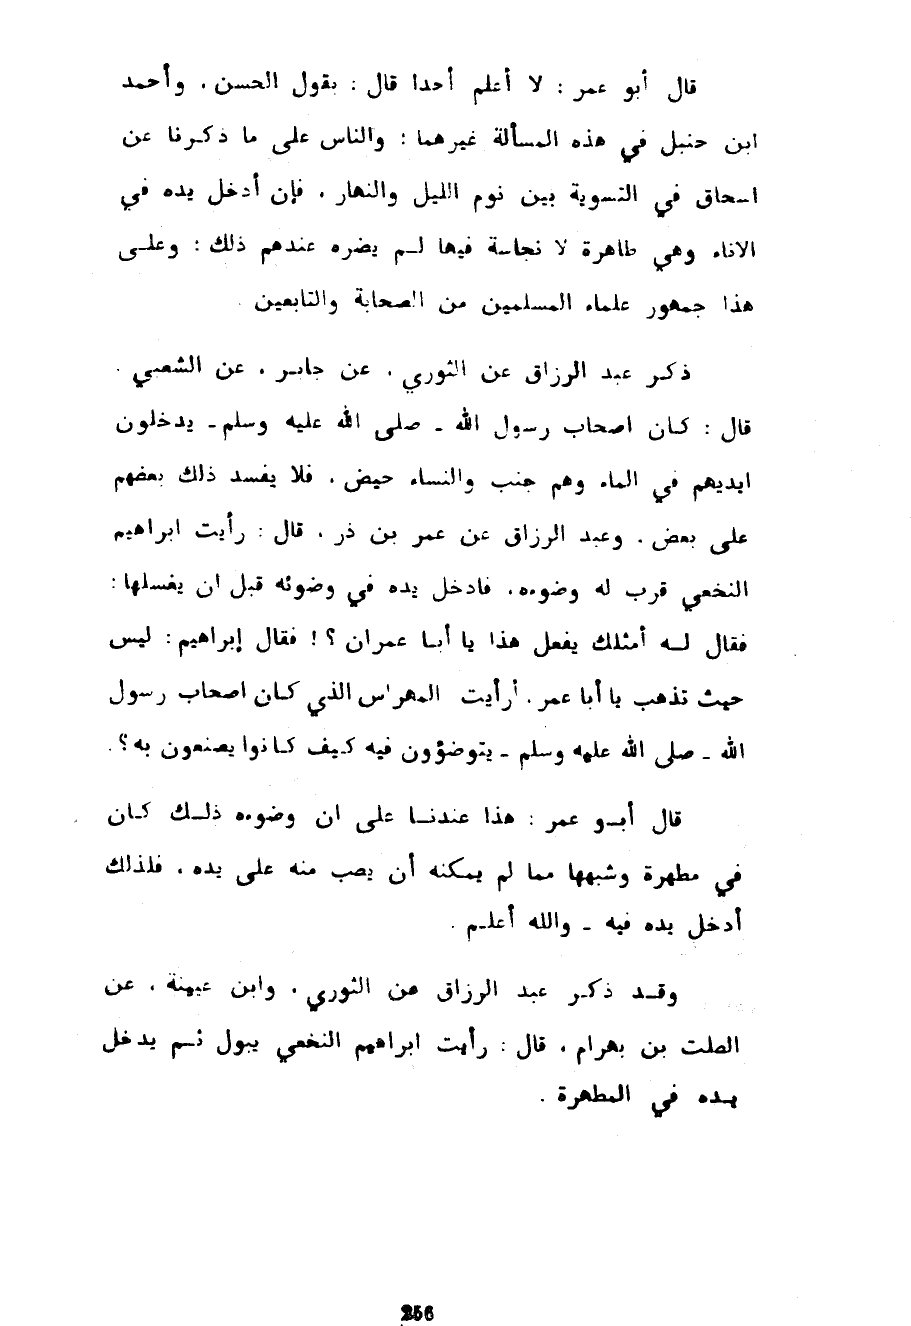 قال أبو عمر : لا أعلم أحدا قال : بقول الحسن ، وأحمد
ابن حنبل في هذه المسألة غيرهما : والناس على ما ذكرنا عن
اسحاق في التسوية بين نوم الليل والنهار ، فإن أدخل يده في
الاناء وهي طاهرة لا نجاسة فيها لم يضره عندهم ذلك : وعلى
هذا جمهور علماء المسلمين من الصحابة والتابعين .
ذكر عبد الرزاق عن الثوري ، عن جابر ، عن الشعبي .
قال : كان اصحاب رسول الله - صلى الله عليه وسلم - يدخلون
ايديهم في الماء وهم جنب والنساء حيض ، فلا يفسد ذلك بعضهم
على بعض . وعبد الرزاق عن عمر بن ذر ، قال : رأيت ابراهيم
النخعي قرب له وضوءه، فادخل يده في وضوئه قبل ان يغسلها :
فقال له أمثلك يفعل هذا يا أبا عمران ؟ ! فقال إبراهيم : ليس
حيث تذهب يا أبا عمر . أرأيت المهراس الذي كان اصحاب رسول
الله - صلى الله عليه وسلم - يتوضؤون فيه كيف كانوا يصنعون به ؟ .
قال أبو عمر : هذا عندنا على ان وضوءه ذلك كان
في مطهرة وشبهها مما لم يمكنه أن يصب منه على يده ، فلذلك
أدخل يده فيه - والله أعلم .
وقد ذكر عبد الرزاق عن الثوري ، وابن عيينة ، عن
الصلت بن بهرام ، قال : رأيت ابراهيم النخعي يبول ثم يدخل
يده في المطهرة .
256